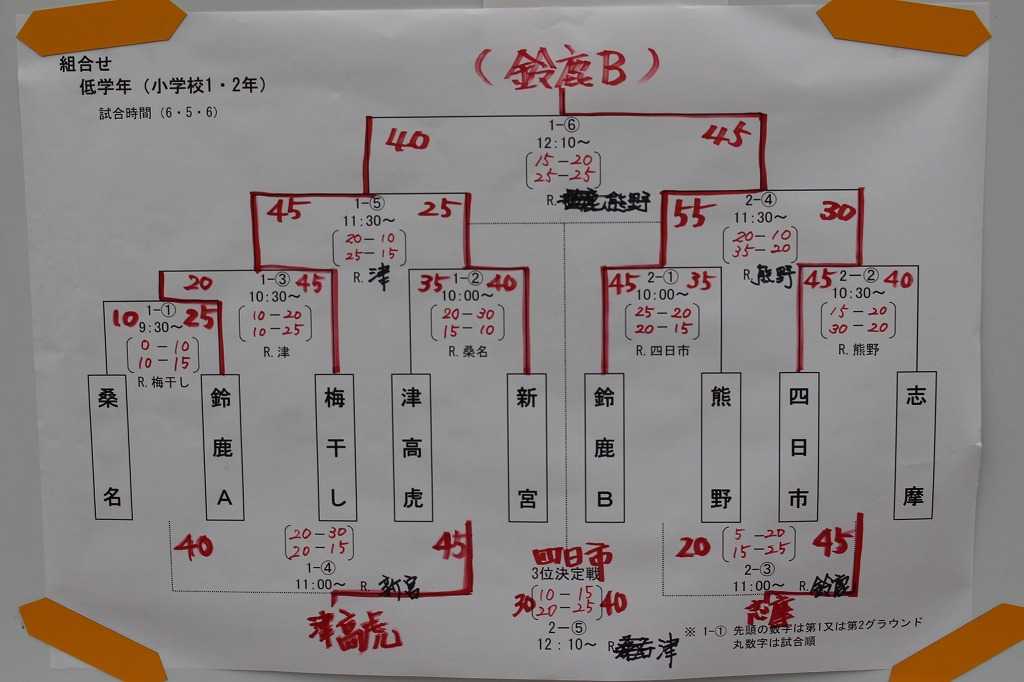 組合せ
低学年（小学校1・2年）
試合時間（6・5・6）
（鈴鹿B）
40
1-⑥
45
12:10～
15-20
25-25
R.熊野
45
1-⑤
25
11:30～
20-10
25-15
R.津
55
2-④
30
11:30～
20-10
35-20
R.熊野
20
1-③
45
10:30～
10-20
10-25
R.津
35
1-②
40
10:00～
20-30
15-10
R.桑名
45
2-①
35
10:00～
25-20
20-15
R.四日市
45
2-②
40
10:30～
15-20
30-20
R.熊野
10
1-①
25
9:30～
0-10
10-15
R.梅干し
桑名
鈴鹿A
梅干し
津高虎
新宮
鈴鹿B
熊野
四日市
志摩
40
20-30
20-15
45
1-④
11:00～
R.新宮
津高虎
四日市
3位決定戦
30
10-15
20-25
40
2-⑤
12:10～
R.津
20
5-20
15-25
45
2-③
11:00～
R.鈴鹿
志摩
※ 1-① 先頭の数字は第1又は第2グラウンド
丸数字は試合順